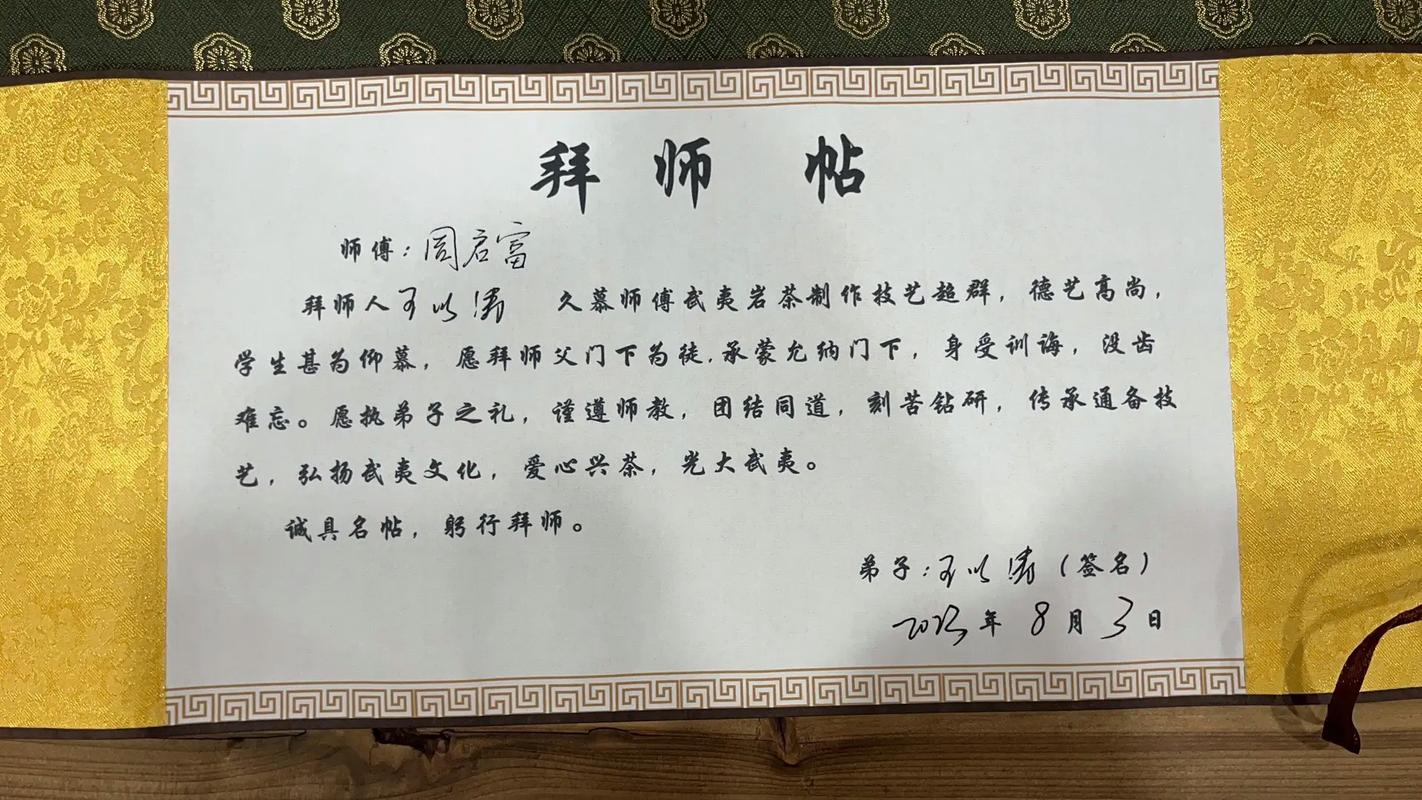 拜师 帖
师傅：周启富
拜师人王以涛 久慕师傅武夷岩茶制作技艺超群，德艺高尚，
学生甚为仰慕，愿拜师父门下为徒.承蒙允纳门下，身受训诲，没齿
难忘。愿执弟子之礼，谨遵师教，团结同道，刻苦钻研，传承通备技
艺，弘扬武夷文化，爱心兴茶，光大武夷。
诚具名帖，躬行拜师。
弟子：王以涛（签名）
2023年 8月 3日